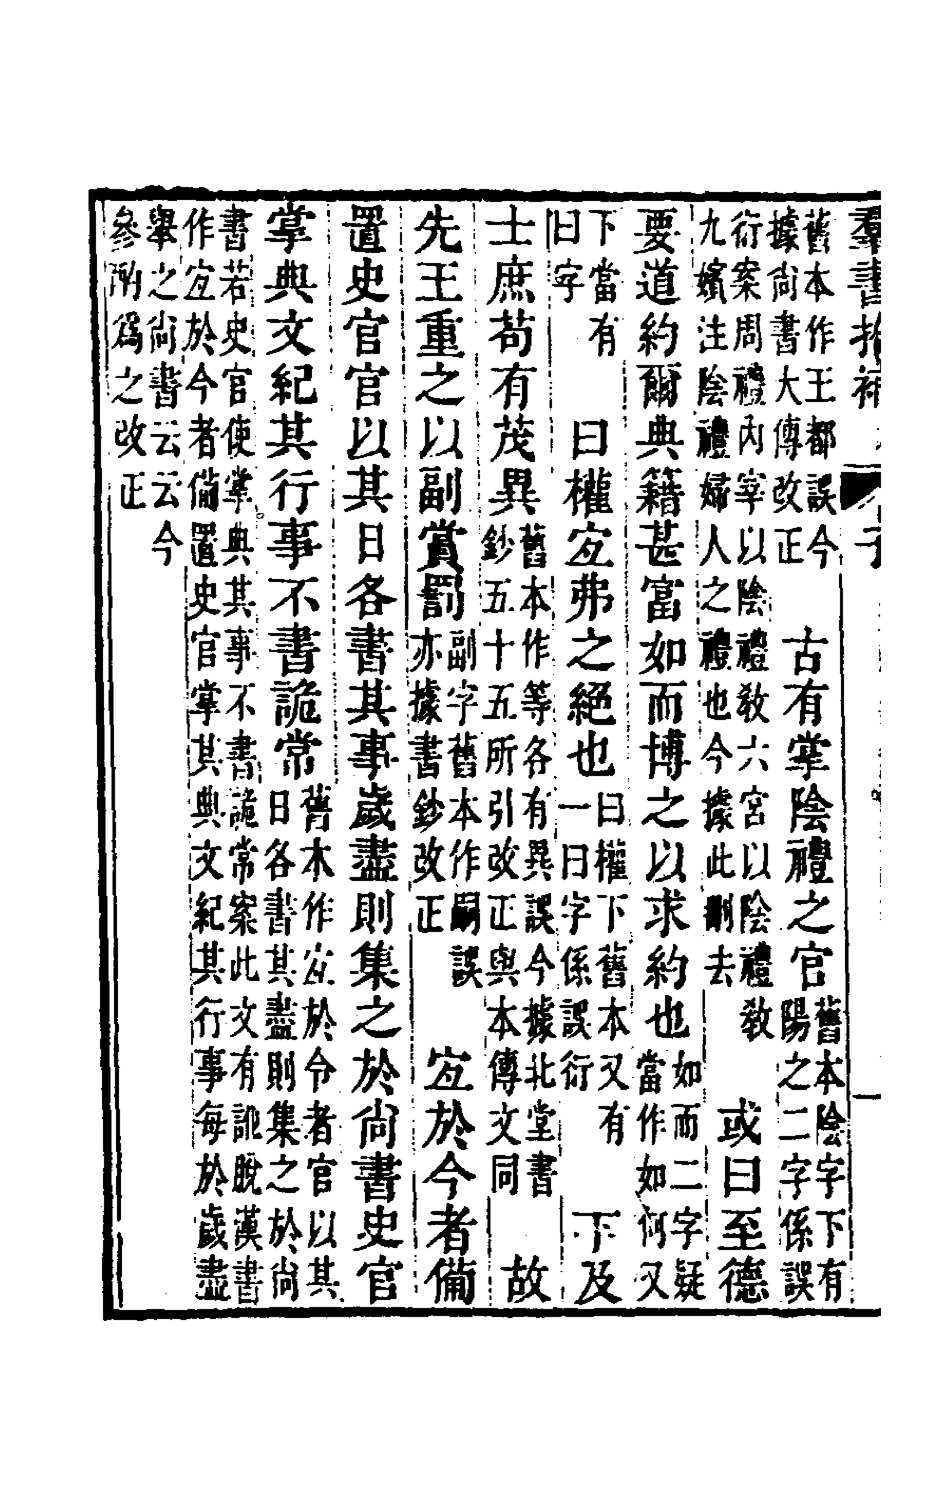 羣書拾補
舊本作王都誤今
據尚書大傳改正
古有掌陰禮之官
舊本陰字下有
陽之二字係誤
衍案周禮內宰以陰禮敎六宮以陰禮敎
九嬪注陰禮婦人之禮也今據此刪去
或曰至德
要道約爾典籍甚富如而博之以求約也
如而二字疑
當作如何又
下當有
曰字
曰權宐弗之絕也
曰權下舊本又有
一曰字係誤衍
下及
士庶苟有茂異
舊本作等各有異誤今據北堂書
鈔五十五所引改正與本傳文同
故
先王重之以副賞罰
副字舊本作嗣誤
亦據書鈔改正
宐於今者備
置史官官以其日各書其事歲盡則集之於尚書史官
掌典文紀其行事不書詭常
舊本作宐於令者官以其
日各書其盡則集之於尚
書若史官使掌典其事不書詭常案此文有訛脫漢書
作宐於今者備置史官掌其典文紀其行事每於歲盡
舉之尚書云云今
參酌爲之改正